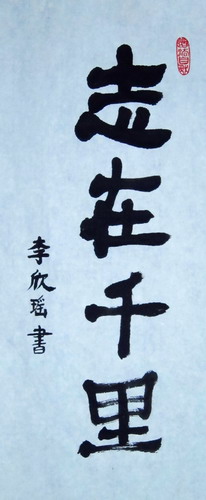 志在千里
李欣瑶書